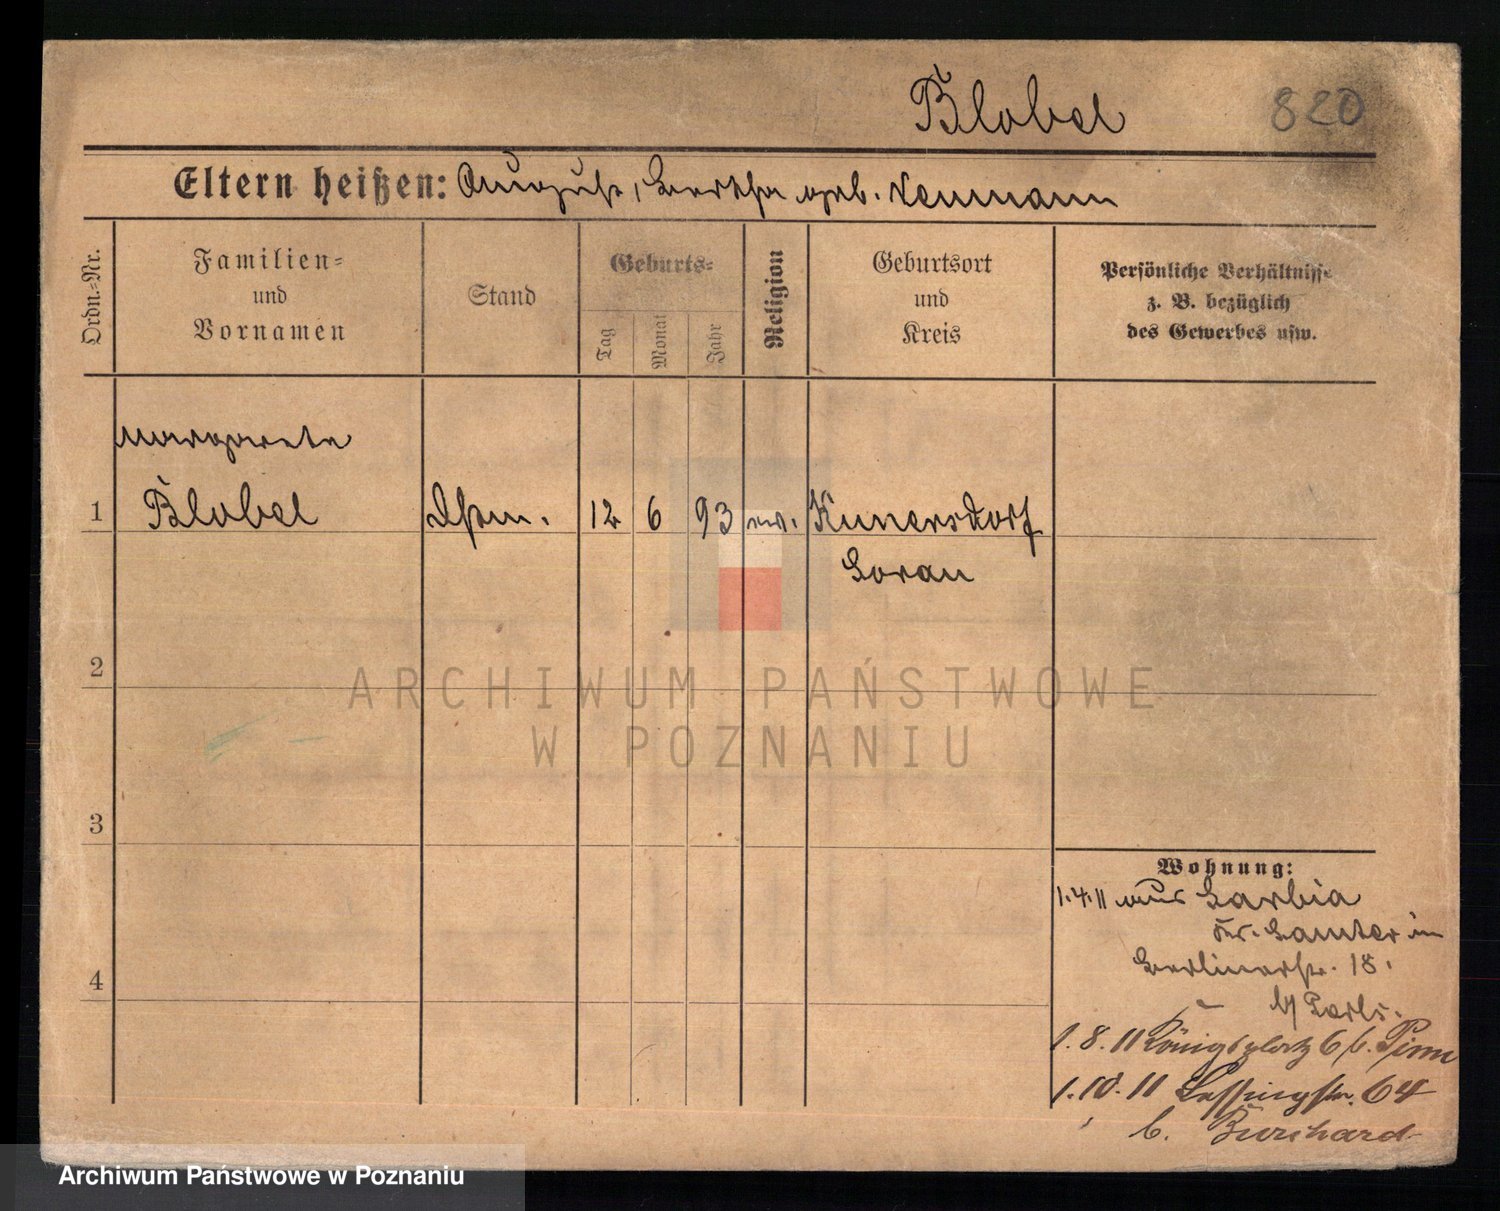 Blobel 820
Eltern heißen: August, Bertha geb. Neumann
Ordn.-Nr.
Familien-
und
Vornamen
Stand
Geburts-
Tag
Monat
Jahr
Religion
Geburtsort
und
Kreis
Persönliche Verhältnisse
z. B. bezüglich
des Gewerbes usw.
Margarete
1 Blobel 12 6 93 ev. Kunersdorf
Sorau
ARCHIWUM PAŃSTWOWE
W POZNANIU
2
3
4
Wohnung:
1.4.11 aus
Kr. Samter in
Berlinerstr. 18.
b/
1.8.11 Königsplatz 6 b.
1.10.11 Lessingstr. 6
b. Burchard
Archiwum Państwowe w Poznaniu